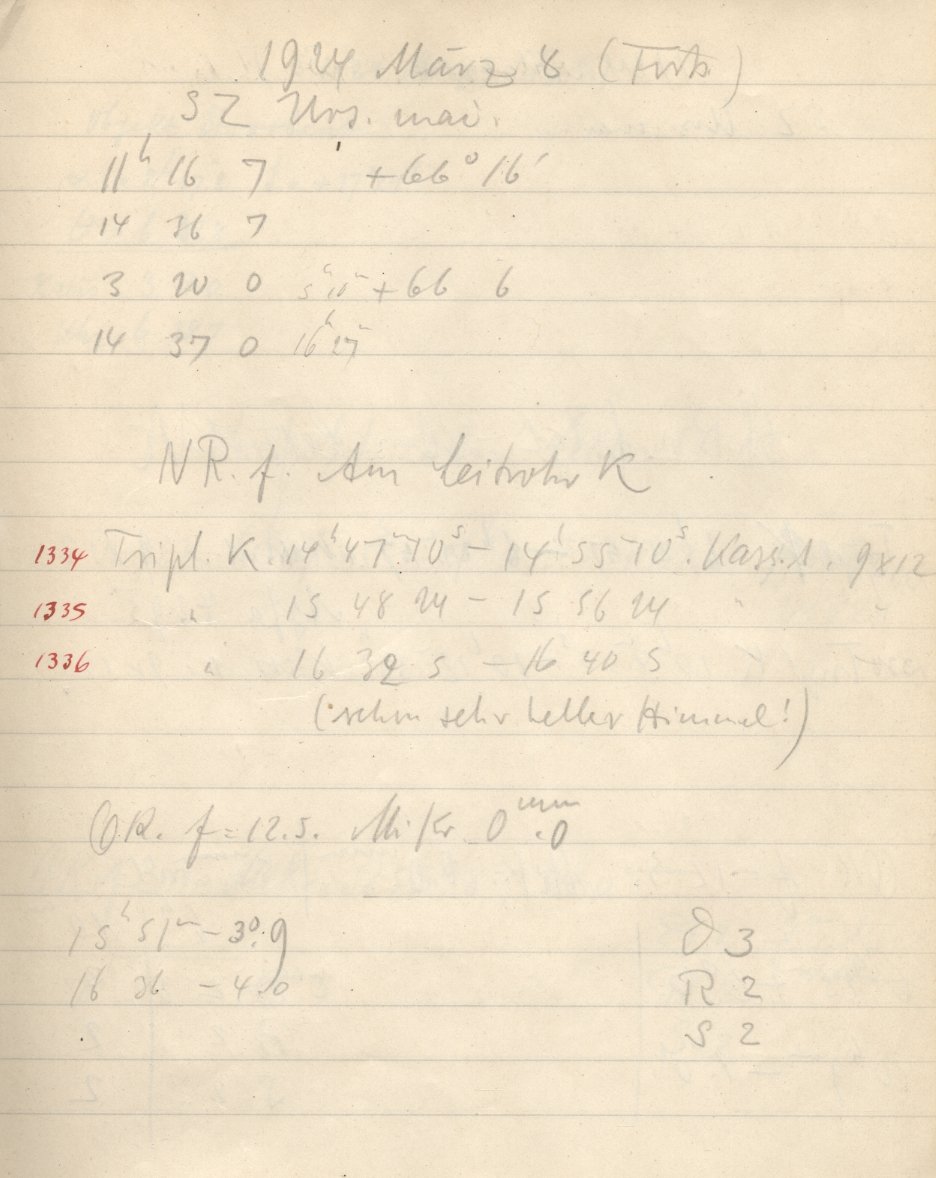 1924 März 8 (Früh)
SZ Urs. mai.
11ʰ 16 7 +66° 16'
14 36 7
3 20 0 5ʰ 10ᵐ +66 6
14 37 0 16ʰ 27ᵐ
NR. f. Am Leitrohr K
1334 Tripl. K. 14ʰ 47ᵐ 10ˢ – 14ʰ 55ᵐ 10ˢ. Kass. 1. 9x12
1335 " 15 48 24 – 15 56 24 "
1336 " 16 32 5 – 16 40 5
(schon sehr heller Himmel!)
OR. f = 12.5. Mikr. 0ᵐᵐ.0
15ʰ 51ᵐ – 3°.9 D 3
16 36 – 4.0 R 2
S 2